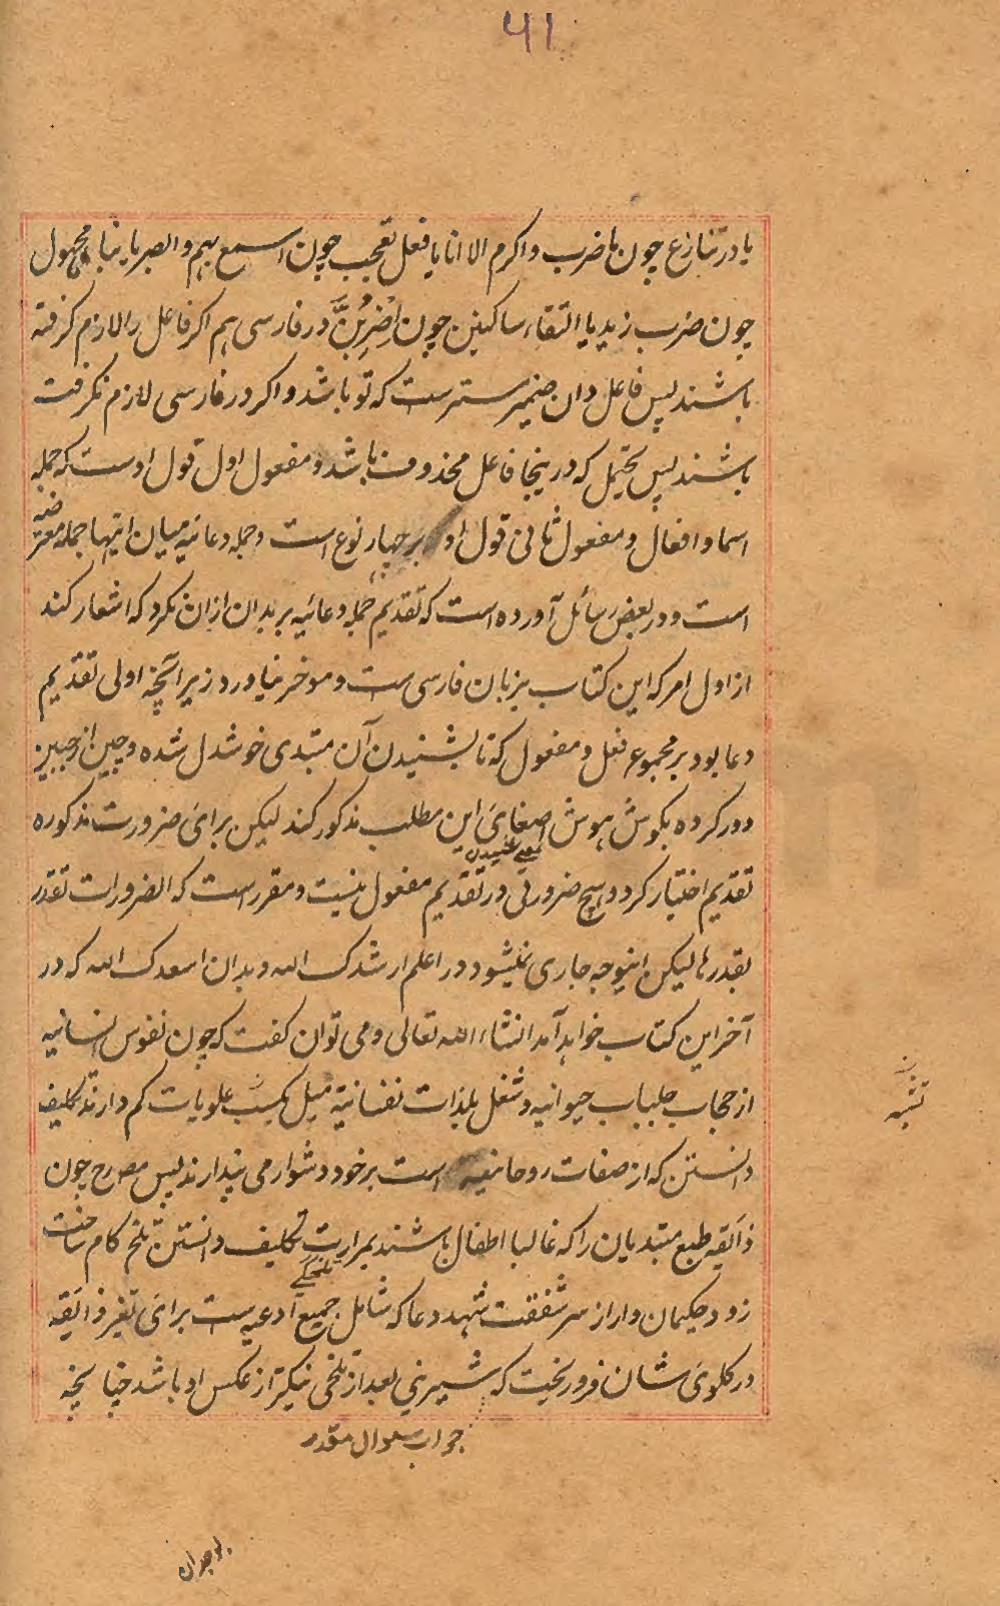 ۴۱
یا در تنازع چون ما ضرب و اکرم الا انا یا فعل تعجب چون اسمع بهم و ابصر یا بنا مجهول
چون ضرب زید یا التقاء ساکنین چون اضربن و در فارسی هم اکر فاعل را لازم کرفته
باشند پس فاعل دان ضمیر مستتر ست که تو باشد و اکر در فارسی لازم نکرفت
باشند پس یحتمل که درینجا فاعل محذوف باشد و مفعول اول قول اوست که جمله
اسما و افعال و مفعول ثانی قول او بر چهار نوع است و جمله دعائیه میان اینها جمله معترضه
است و در بعض رسائل آورده است که تقدیم جمله دعائیه بر بدان ازان نکرد که اشعار کند
از اول امر که این کتاب بزبان فارسی ست و موخر نیاورد زیرا آنچه اولی تقدیم
دعا بود بر مجموع فعل و مفعول که تا بشنیدن آن مبتدی خوشدل شده و چین از جبین
دور کرده بکوش هوش اصغای این مطلب مذکور کند لیکن برای ضرورت مذکوره
تقدیم اختیار کرد و هیچ ضرورتی در تقدیم مفعول نیست و مقررست که الضرورات تقدر
بقدرها لیکن اینوجه جاری نمیشود در اعلم ارشدک الله و بدان اسعدک الله که در
آخر این کتاب خواهد آمد انشاء الله تعالی و می توان کفت که چون نفوس انسانیه
از حجاب جلباب حیوانیه و شغل بلذات نفسانیه میل بکسب علویات کم دارند تکلیف
دانستن که از صفات روحانیه است بر خود دشوار می پندارند پس مصرح چون
ذایقه طبع مبتدیان را که غالبا اطفال باشند بمرارت تکلیف دانستن تلخ کام ساخت
زود حکیمان وار از سر شفقت شهد دعا که شامل جمیع ادعیه ست برای تغیر ذایقه
در کلوی شان فرو ریخت که شیرینی بعد از تلخی نیکتر از عکس او باشد چنانچه
جواب سوال مقدر
تشبیه